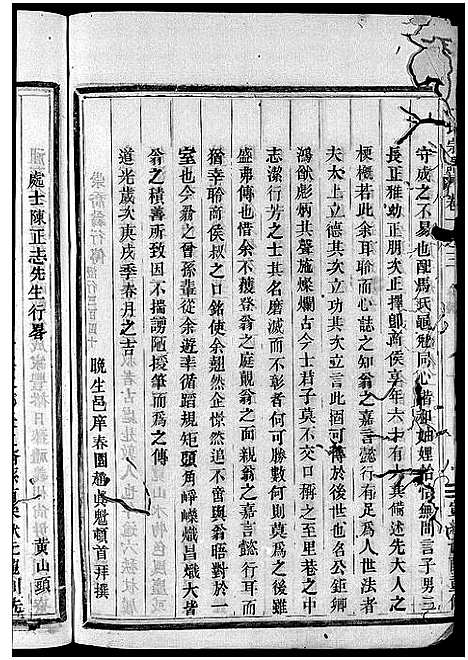 守成之不易也配馬氏黽勉同心惜和妯娌怡怡無間言子男三
長正雅幼正朋次正擇卽崙侯享年六十有六其備述先大人之
梗槪若此余耳聆而心誌之知翁之嘉言懿行有足風者昔穆大
夫太上立德其次立功其次立言此固可傳於後世也名公鉅卿
鴻猷彪炳其聲施燦爛古今士君子莫不交口稱之至里巷之中
志潔行芳之士其名磨滅而不彰者何可勝數何則莫爲之後雖
盛弗傳也惜余不獲登翁之庭覩翁之面親翁之嘉言懿行耳而
猶幸聆崙侯叔之口銘使余翹然企憬然追不啻與翁晤對於一
室也今翁之曾孫輩從余遊率循蹈規矩頭角崢嶸熾昌熾大皆
翁之積善所致因不揣謭陋援筆而爲之傳
道光歲次庚戌季春月之吉
晚生邑庠春園趙貞魁頓首拜撰
處士陳正志先生行畧
黄山頭